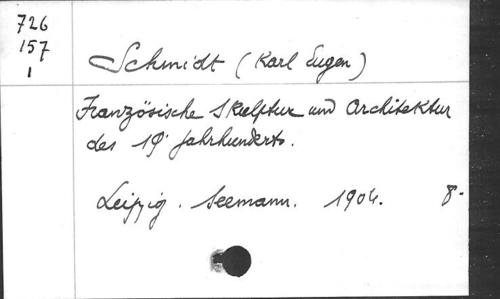 726
157
1
Schmidt (Karl Eugen)
Französische Skulptur und Architektur
des 19. Jahrhunderts.
Leipzig. Seemann. 1904. 8°